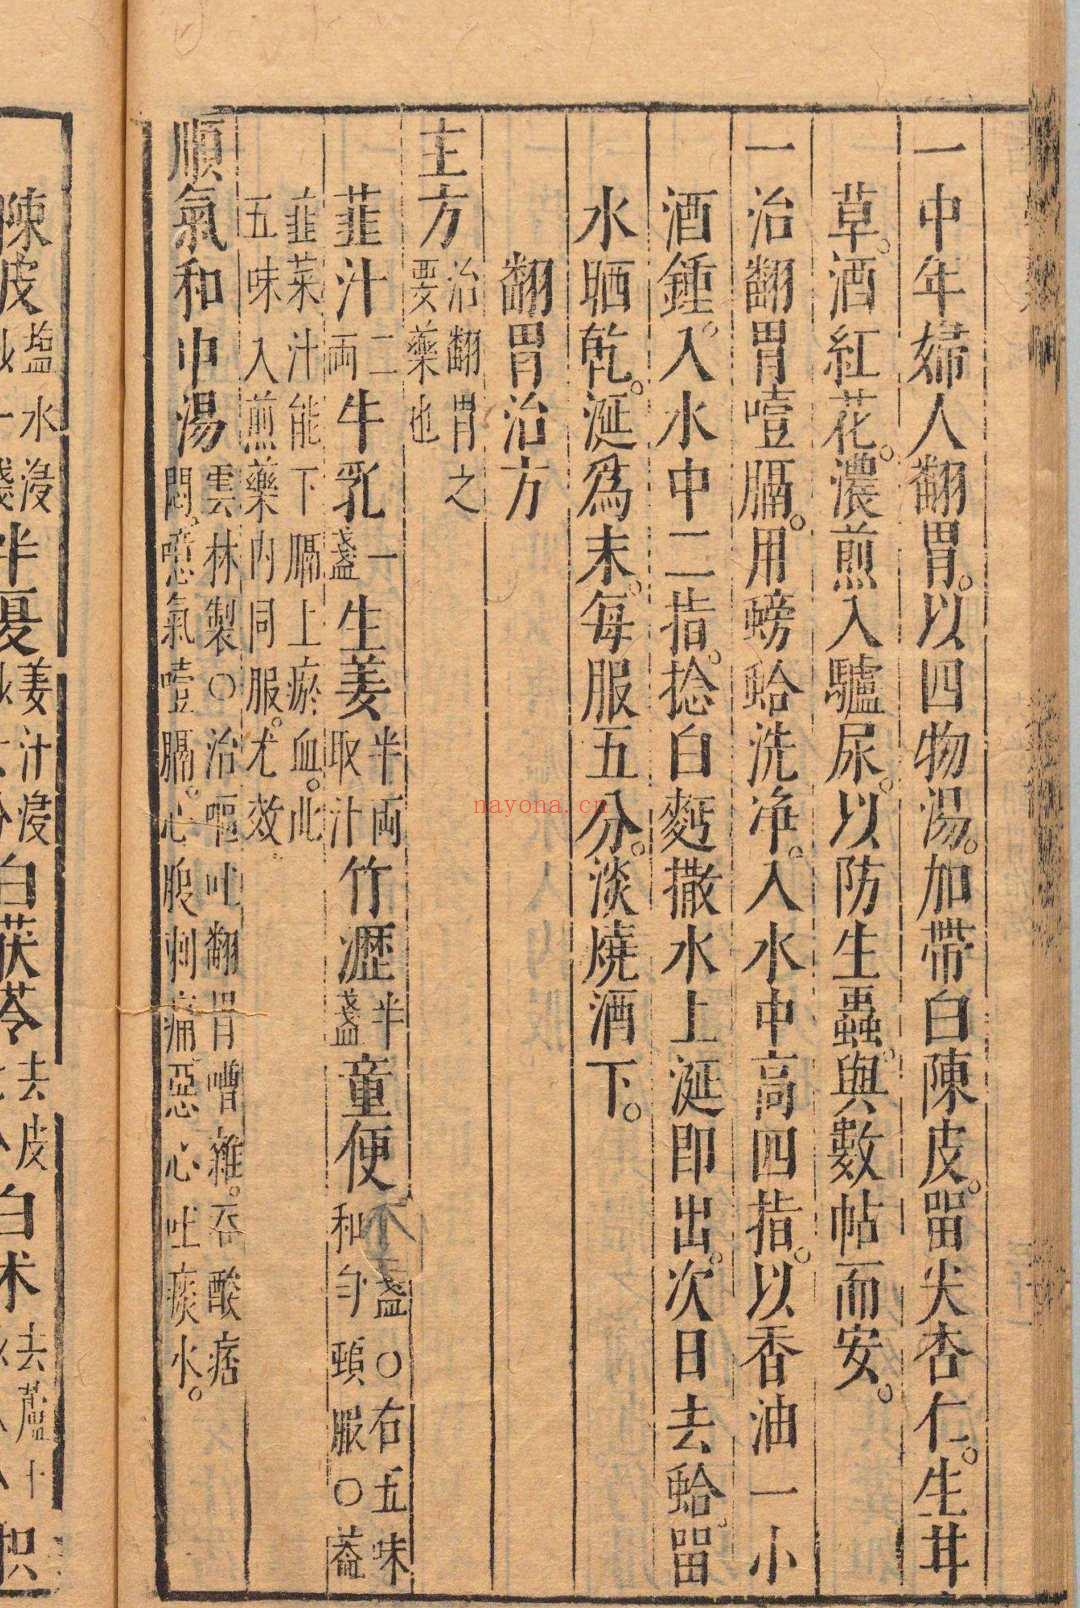 一中年婦人翻胃。以四物湯。加帶白陳皮。畱尖杏仁。生甘
草。酒紅花。濃煎入驢尿。以防生蟲。與數帖而安。
一治翻胃壹膈。用螃蛤洗净。入水中高四指。以香油一小
酒鍾。入水中二指。捻白麪撒水上涎即出。次日去蛤。畱
水晒乾。涎爲末。每服五分。淡燒酒下。
翻胃治方
主方治翻胃之
要藥也
韮汁二
両牛乳一
盞生姜半両
取汁竹瀝半
盞童便一盞〇右五味
和匀頓服〇蓋
韮菜汁能下膈上瘀血。此
五味入煎藥内同服。尤效
順氣和中湯雲林製〇治嘔吐翻胃嘈雜。吞酸痞
悶。噫氣噎膈。心腹刺痛惡心吐痰水。
陳皮塩水浸
半夏姜汁浸
白茯苓去皮
白术去蘆
枳
nayona.cn